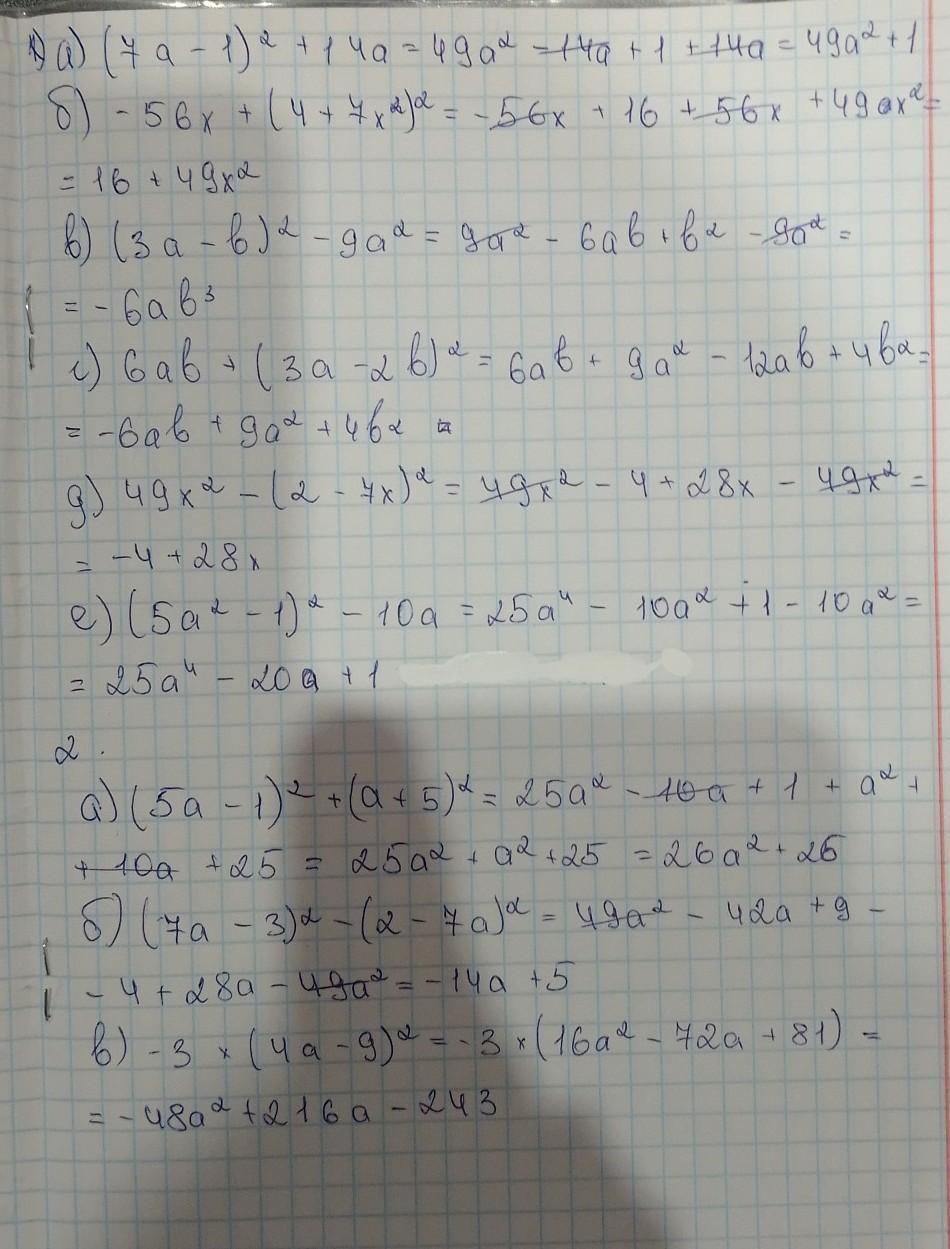 1) а) (7a - 1)² + 14a = 49a² - 14a + 1 + 14a = 49a² + 1
б) - 56x + (4 + 7x²)² = - 56x + 16 + 56x + 49ax² =
= 16 + 49x²
в) (3a - b)² - 9a² = 9a² - 6ab + b² - 9a² =
= - 6ab³
г) 6ab + (3a - 2b)² = 6ab + 9a² - 12ab + 4b² =
= -6ab + 9a² + 4b² =
д) 49x² - (2 - 7x)² = 49x² - 4 + 28x - 49x² =
= -4 + 28x
е) (5a² - 1)² - 10a = 25a⁴ - 10a² + 1 - 10a² =
= 25a⁴ - 20a + 1
2.
а) (5a - 1)² + (a + 5)² = 25a² - 10a + 1 + a² +
+ 10a + 25 = 25a² + a² + 25 = 26a² + 26
б) (7a - 3)² - (2 - 7a)² = 49a² - 42a + 9 -
- 4 + 28a - 49a² = - 14a + 5
в) - 3 × (4a - 9)² = - 3 × (16a² - 72a + 81) =
= - 48a² + 216a - 243